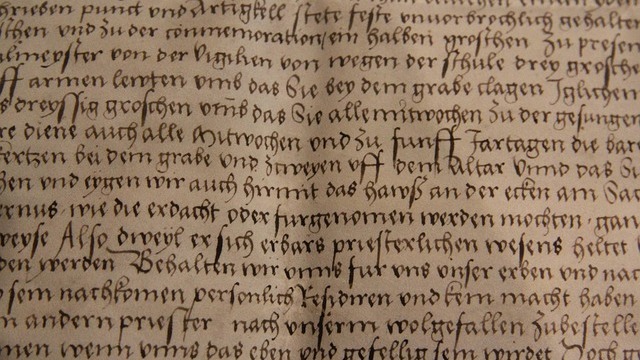 hrieben punct und Artigkell stete feste unvorbrochlich gehalten
schen und zu der commemoration ein halben groschen zu presen
ulmeyster von der vigilien von wegen der schule drey grosche
ff armen lewten vmb das Sie bey dem grabe clagen Iglichen
s dreyssig groschen vmb das Sie alle mitwochen zu der gesungen
re diene auch alle Mitwochen und zu funff Jartagen die bar
kertzen bei dem grabe und zcweyen uff dem Altar vnnd das Si
hen und eygen wir auch hirmit das hawß an der ecken am Sa
ernus wie die erdacht oder furgenomen werden mochten gan
weyse Also dweyl er sich erbars priesterlichen wesens heltet
den werden Behalten wir vnns fur vns vnser erben und nac
sein nachkomen personlich Residiren und kein macht haben
n andern priester nach unserm wolgefallen zubestelle
men wenn vnns das eben und gefellig sein wirdet Doch